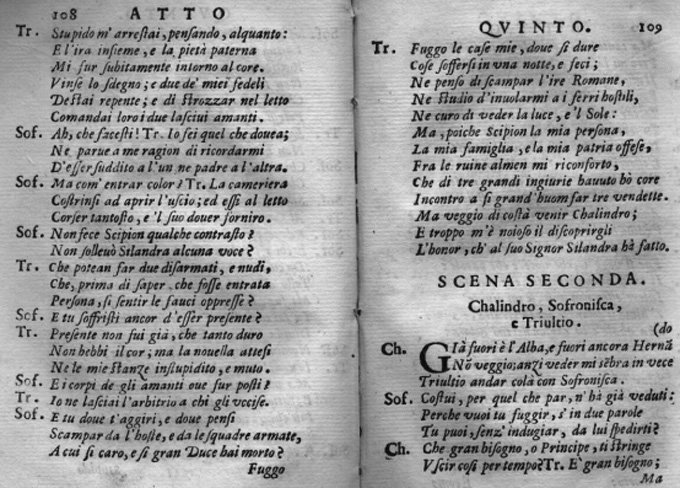 108 ATTO
Tr. Stupido m'arrestai, pensando, alquanto:
E l'ira insieme, e la pietà paterna
Mi fur subitamente intorno al core.
Vinse lo sdegno; e due de' miei fedeli
Destai repente; e di strozzar nel letto
Comandai loro i due lasciui amanti.
Sof. Ah, che facesti! Tr. Io fei quel che douea;
Ne parue a me ragion di ricordarmi
D'esser suddito a l'un ne padre a l'altra.
Sof. Ma com' entrar color? Tr. La cameriera
Costrinsi ad aprir l'uscio; ed essi al letto
Corser tantosto, e 'l suo douer forniro.
Sof. Non fece Scipion qualche contrasto?
Non solleuò Silandra alcuna voce?
Tr. Che potean far due disarmati, e nudi,
Che, prima di saper, che fosse entrata
Persona, si sentir le fauci oppresse?
Sof. E tu soffristi ancor d'esser presente?
Tr. Presente non fui già, che tanto duro
Non hebbi il cor; ma la nouella attesi
Ne le mie stanze instupidito, e muto.
Sof. E i corpi de gli amanti oue fur posti?
Tr. Io ne lasciai l'arbitrio a chi gli vccise.
Sof. E tu doue t'aggiri, e doue pensi
Scampar da l'hoste, e da le squadre armate,
A cui sì caro, e sì gran Duce hai morto?
Fuggo
QVINTO. 109
Tr. Fuggo le case mie, doue sì dure
Cose soffersi in vna notte, e feci;
Ne penso di scampar l'ire Romane,
Ne studio d'inuolarmi a i ferri hostili,
Ne curo di veder la luce, e 'l Sole:
Ma, poiche Scipion la mia persona,
La mia famiglia, e la mia patria offese,
Fra le ruine almen mi riconforto,
Che di tre grandi ingiurie hauuto hò core
Incontro a sì grand' huom far tre vendette.
Ma veggio di costà venir Chalindro;
E troppo m'è noioso il discoprirgli
L'honor, ch' al suo Signor Silandra hà fatto.
SCENA SECONDA.
Chalindro, Sofronisca,
e Triultio.
(do
Ch. Già fuori è l'Alba, e fuori ancora Hernã
Nõ veggio; anzi veder mi sẽbra in vece
Triultio andar colà con Sofronisca.
Sof. Costui, per quel che par, n'hà già veduti:
Perche vuoi tu fuggir, s'in due parole
Tu puoi, senz' indugiar, da lui spedirti?
Ch. Che gran bisogno, o Principe, ti stringe
Vscir così per tempo? Tr. E' gran bisogno;
Ma